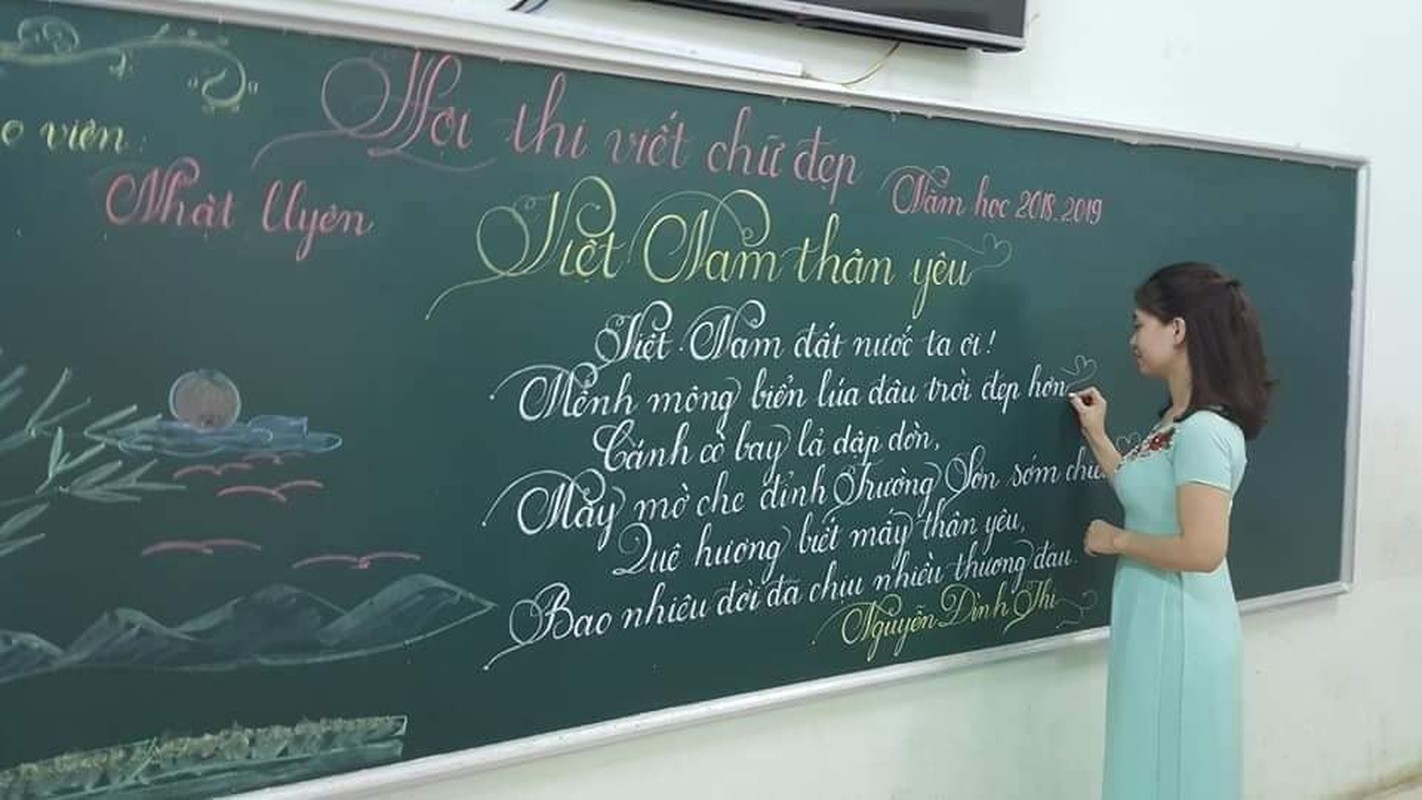 Hội thi viết chữ đẹp
viên:
Nhật Uyên
Năm học 2018-2019
Việt Nam thân yêu
Việt Nam đất nước ta ơi!
Mênh mông biển lúa đâu trời đẹp hơn
Cánh cò bay lả dập dờn,
Mây mờ che đỉnh Trường Sơn sớm chiều
Quê hương biết mấy thân yêu,
Bao nhiêu đời đã chịu nhiều thương đau.
Nguyễn Đình Thi